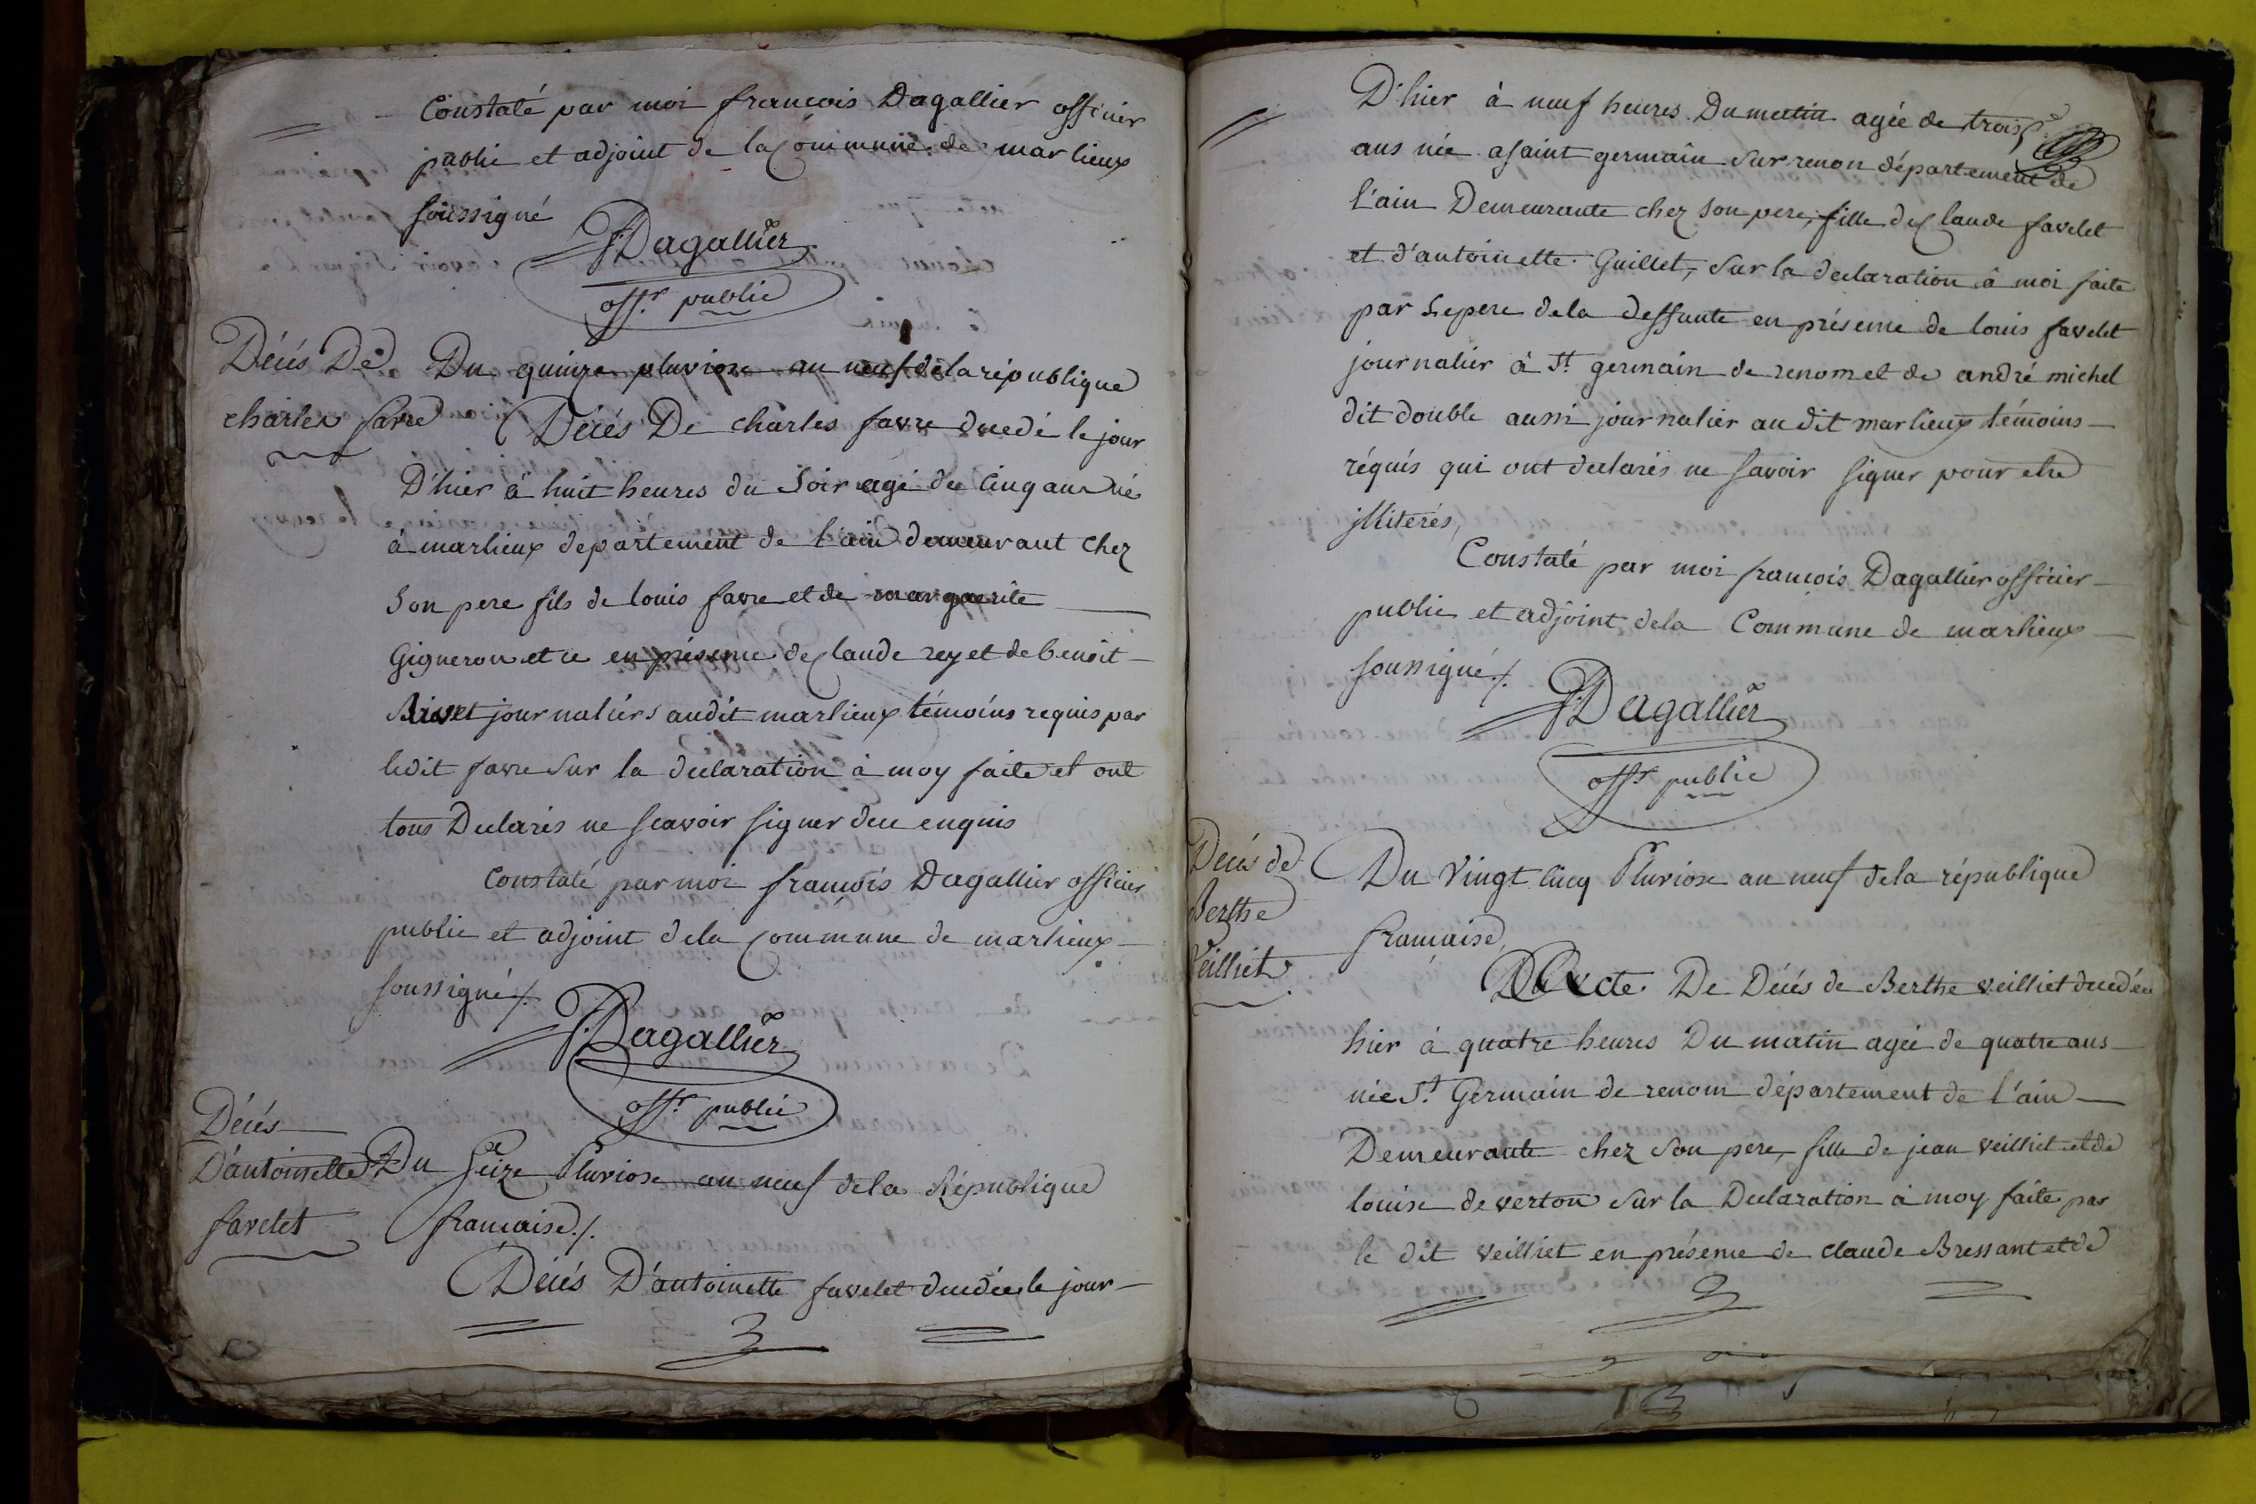 Constaté par moi françois Dagallier officier
public et adjoint de la Commune de marlieux
soussigné
Dagallier
offr. public
Décés De
charles favre
Du quinze pluviose an neuf de la république
Décés De charles favre decedé le jour
D'hier à huit heures du soir agé de cinq ans né
à marlieux departement de l'ain demeurant chez
son pere fils de louis favre et de marguerite
Gigneron et ce en présence de Claude rey et de benoit
Rivet journaliers audit marlieux témoins requis par
ledit favre sur la declaration à moy faite et ont
tous Declarés ne scavoir signer de ce enquis
Constaté par moi françois Dagallier officier
public et adjoint de la Commune de marlieux
soussigné ./.
Dagallier
offr. public
Décés
D'antoinette
favelet
Du Seize Pluviose an neuf de la République
française ./.
Décés D'antoinette favelet decedée le jour
D'hier à neuf heures Du matin agée de trois
ans née a saint germain sur renon département de
l'ain Demeurante chez son pere, fille de Claude favelet
et d'antoinette Guillet, sur la declaration à moi faite
par le pere de la deffunte en présence de louis favelet
journalier à St. germain de renom et de andré michel
dit double aussi journalier au dit marlieux témoins
réquis qui ont declarés ne savoir signer pour etre
illiterés,
Constaté par moi françois Dagallier officier
public et adjoint de la Commune de marlieux
soussigné ./.
Dagallier
offr. public
Decés de
Berthe
Veilliet
Du Vingt cinq Pluviose an neuf de la république
française,
Acte De Décés de Berthe veilliet decedée
hier à quatre heures Du matin agée de quatre ans
née St. Germain de renom département de l'ain
Demeurante chez son pere, fille de jean veilliet et de
louise de verton sur la Declaration à moy faite par
le dit veilliet en présence de claude Bressant et de